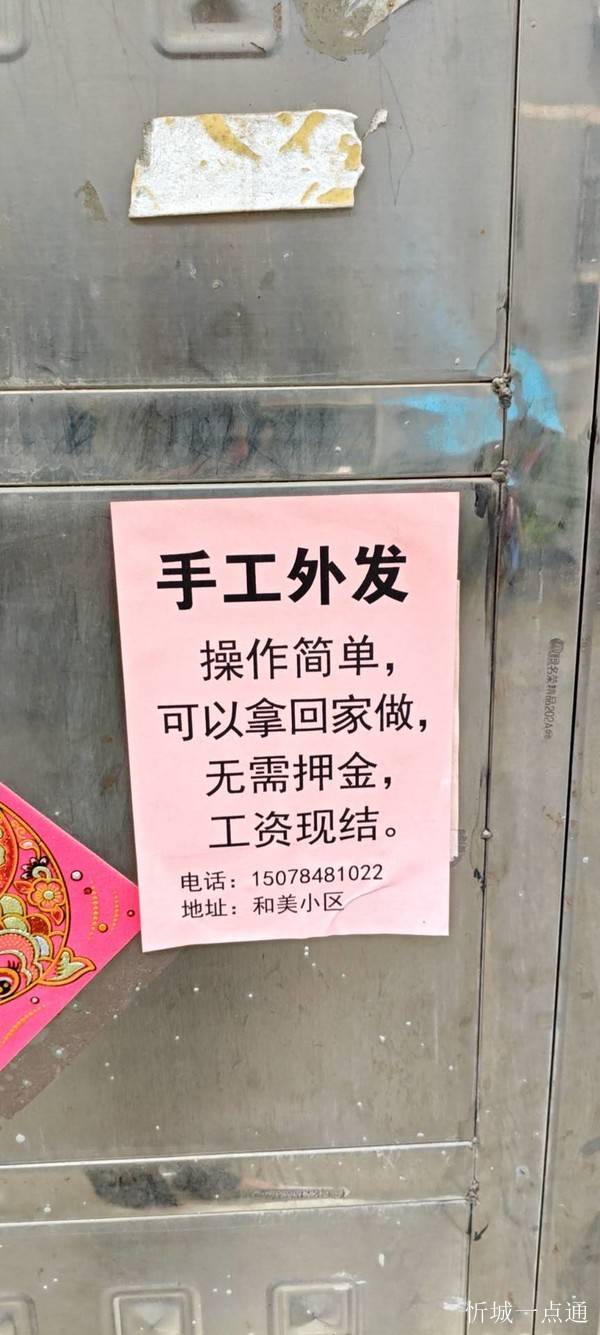 手工外发
操作简单，
可以拿回家做，
无需押金，
工资现结。
电话：15078481022
地址：和美小区
忻城一点通